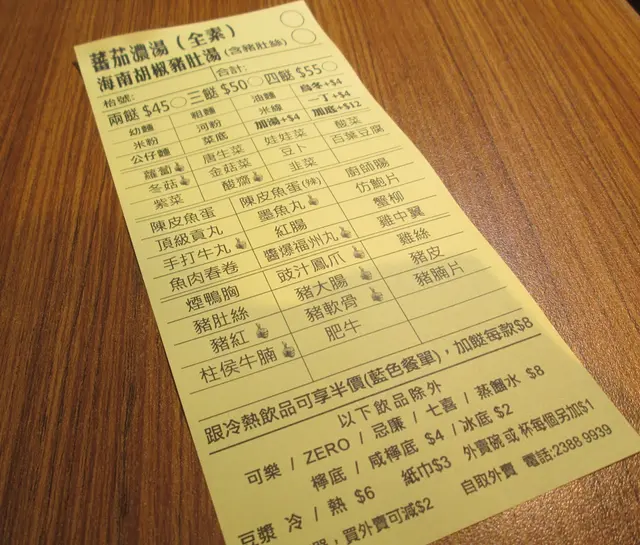 蕃茄濃湯（全素）
海南胡椒豬肚湯(含豬肚絲)
枱號: 合計:
兩餸 $45 三餸 $50 四餸 $55
幼麵 粗麵 油麵 烏冬+$4
米粉 河粉 米線 一丁+$4
公仔麵 菜底 加湯+$4 加底+$12
蘿蔔 唐生菜 娃娃菜 酸菜
冬菇 金菇菜 豆卜 百葉豆腐
紫菜 酸腐 韭菜
陳皮魚蛋 陳皮魚蛋(辣) 廚師腸
頂級貢丸 墨魚丸 仿鮑片
手打牛丸 紅腸 蟹柳
魚肉春卷 醬爆福州丸 雞中翼
煙鴨胸 豉汁鳳爪 雞絲
豬肚絲 豬大腸 豬皮
豬紅 豬軟骨 豬腩片
柱侯牛腩 肥牛
跟冷熱飲品可享半價(藍色餐單)，加餸每款$8
以下飲品除外
可樂 / ZERO / 忌廉 / 七喜 / 蒸餾水 $8
檸底 / 咸檸底 $4 / 冰底 $2
豆漿 冷 / 熱 $6 紙巾$3 外賣碗或杯每個另加$1
單，買外賣可減$2 自取外賣 電話:2388 9939